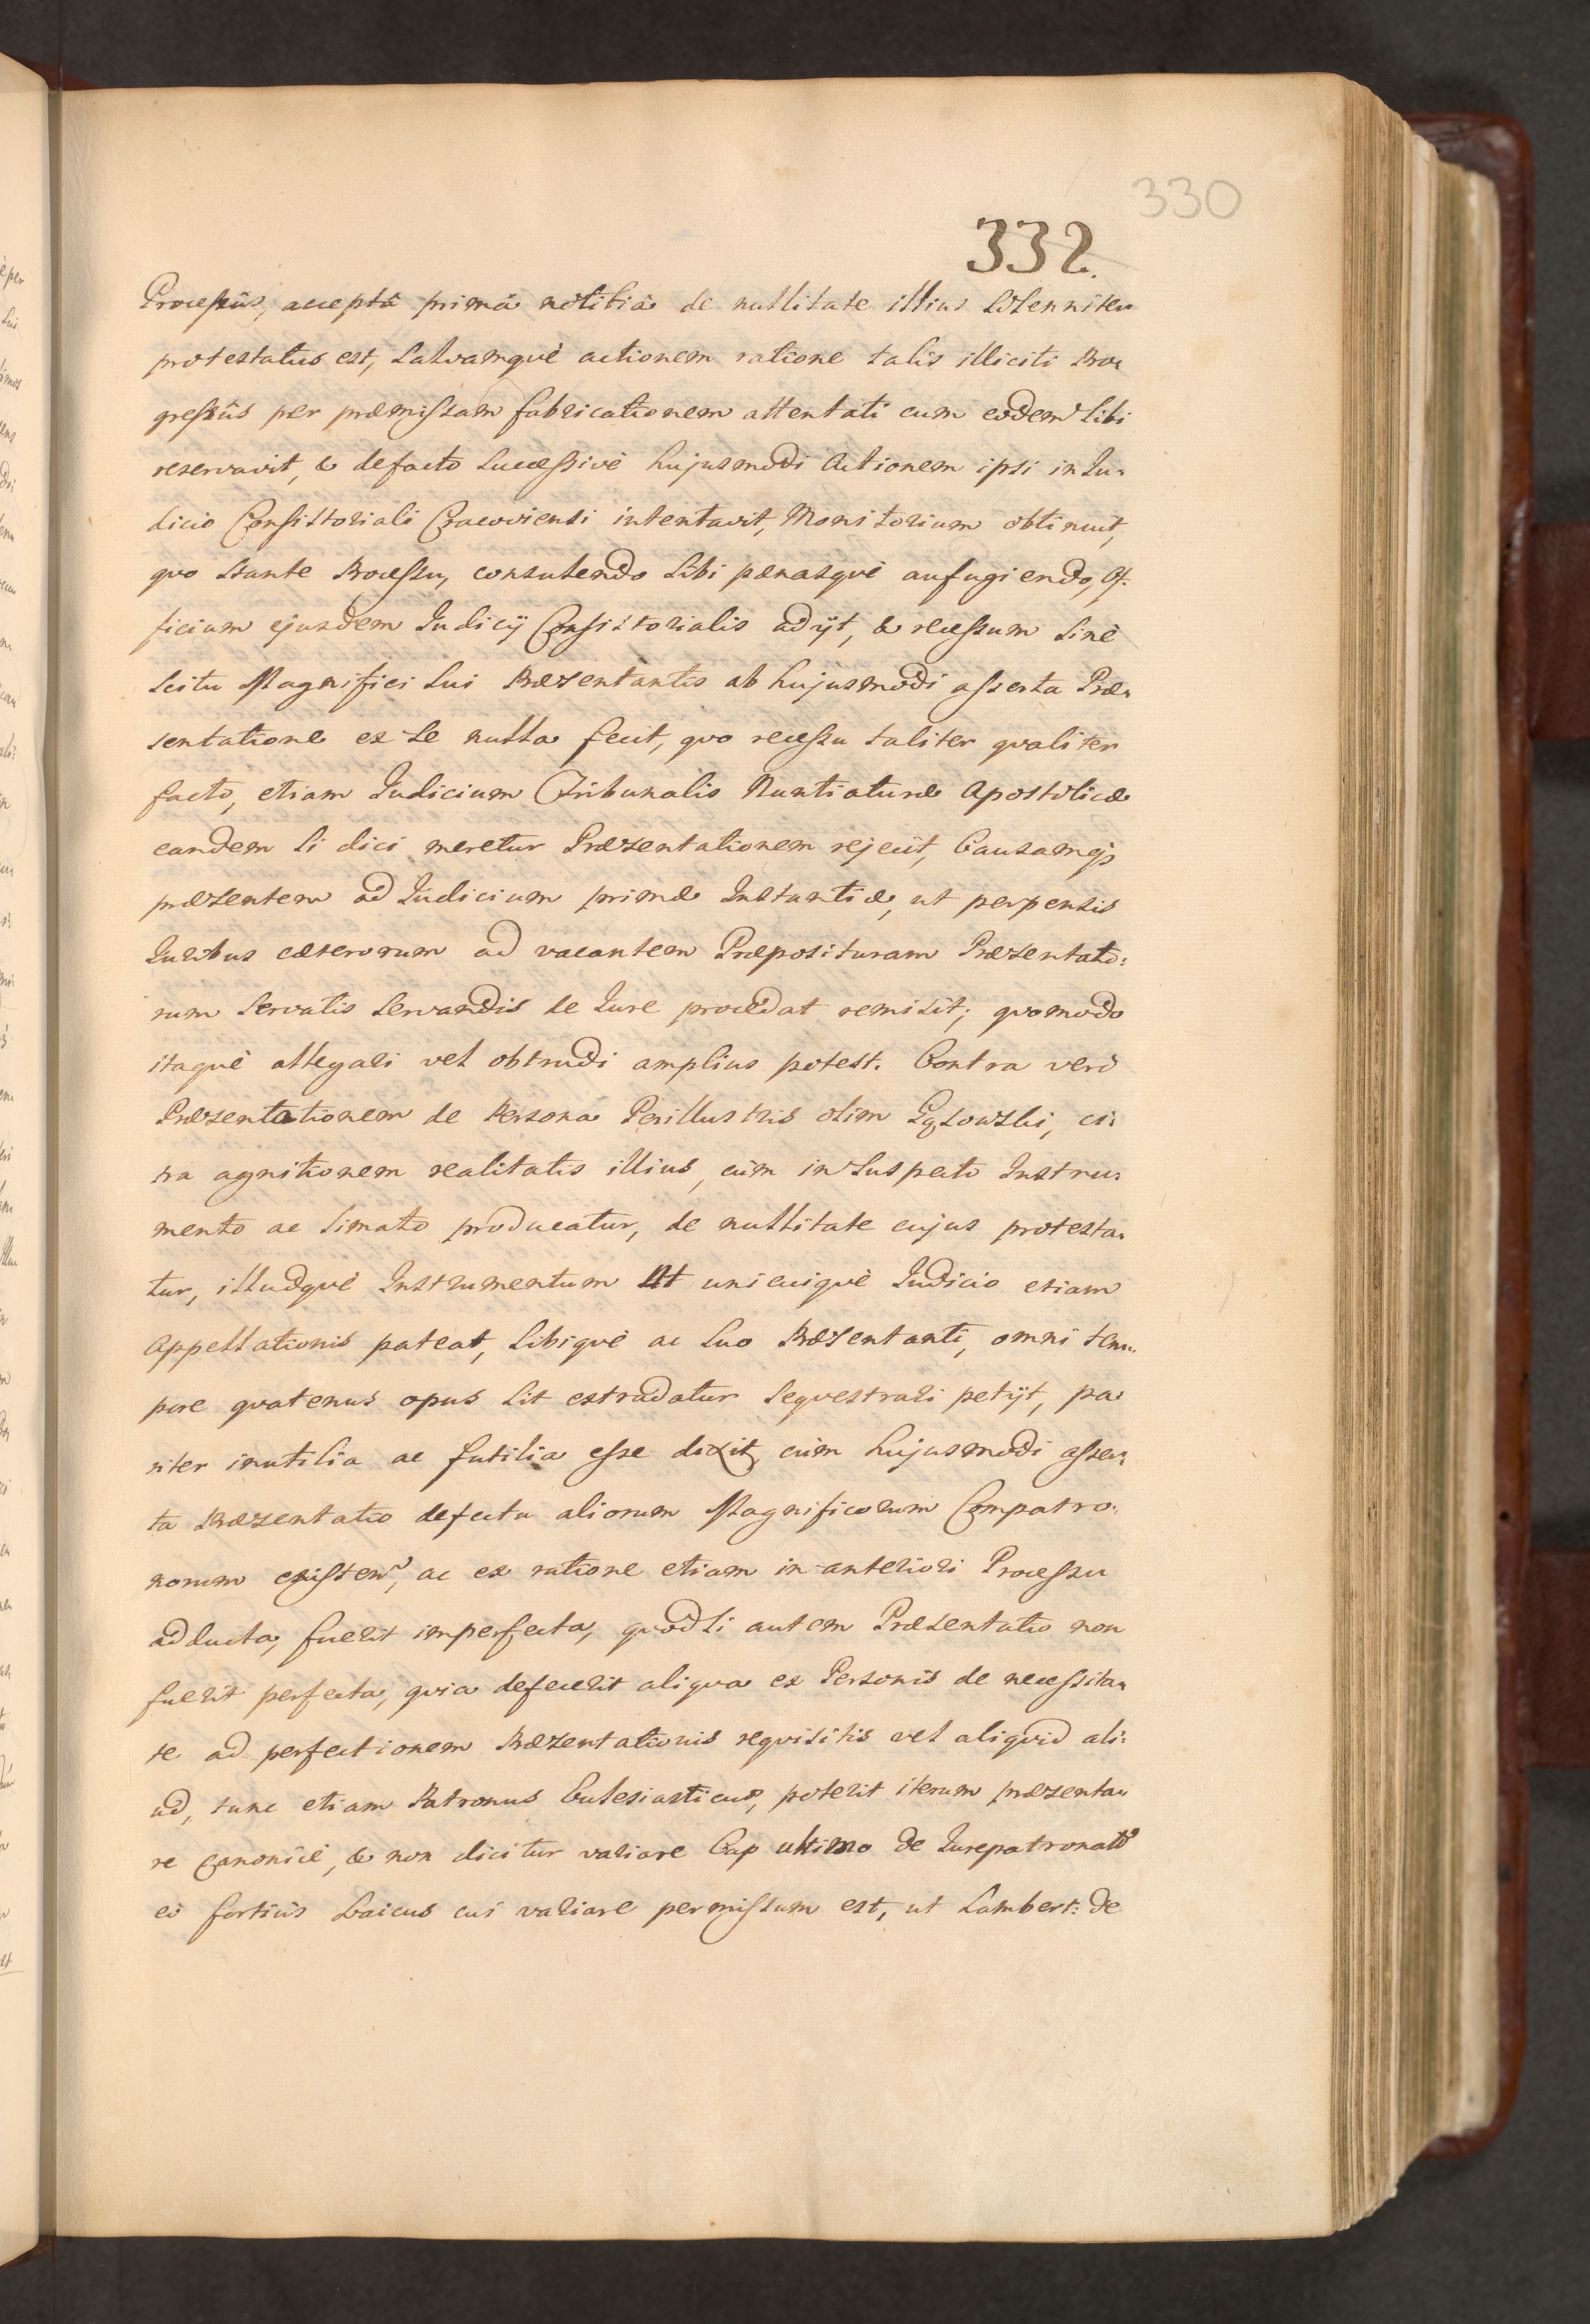 330
332.
Processûs, acceptâ primâ notitiâ de nullitate illius solenniter
protestatus est, salvamquè actionem ratione talis illiciti Pro-
gressûs per præmissam fabricationem attentati cum eodem sibi
reservavit, & defacto successivè hujusmodi actionem ipsi in Ju-
dicio Consistoriali Cracoviensi intentavit, Monitorium obtinuit,
quo stante Processu, consulendo sibi pænasquè aufugiendo, Of-
ficium ejusdem Judicij Consistorialis adijt, & recessum sinè
scitu Magnifici sui Præsentantis ab hujusmodi asserta Præ-
sentatione ex se nulla fecit, quo recessu taliter qualiter
facto, etiam Judicium Tribunalis Nuntiaturæ Apostolicæ
eandem si dici meretur Præsentationem rejecit, Causamq;
præsentem ad Judicium primæ Instantiæ, ut perpensis
Juribus cæterorum ad vacantem Præposituram Præsentato:
rum servatis servandis de Jure procedat remisit; quomodo
itaquè allegari vel obtrudi amplius potest. Contra verò
Præsentationem de Persona Perillustris olim, ci:
tra agnitionem realitatis illius, cùm in suspecto Instru:
mento ac limato producatur, de nullitate cujus protesta:
tur, illudquè Instrumentum Ut unicuiquè Judicio etiam
Appellationis pateat, sibiquè ac suo Præsentanti, omni tem:
pore quatenus opus sit extradatur sequestrari petijt, pa
riter inutilia ac futilia esse dixit, cùm hujusmodi asser:
ta Præsentatio defectu aliorum Magnificorum Compatro:
norum existen, ac ex ratione etiam in anteriori Processu
adducta, fuerit imperfecta, quodsi autem Præsentatio non
fuerit perfecta, quia defecerit aliqua ex Personis de necessita:
te ad perfectionem Præsentationis requisitis vel aliquid ali:
ud, tunc etiam Patronus Eclesiasticus, poterit iterum præsenta:
re canonicè, & non dicitur variare Cap ultimo de Jurepatronatus
eò fortiùs Laicus cui variare permissum est, ut Lambert: de